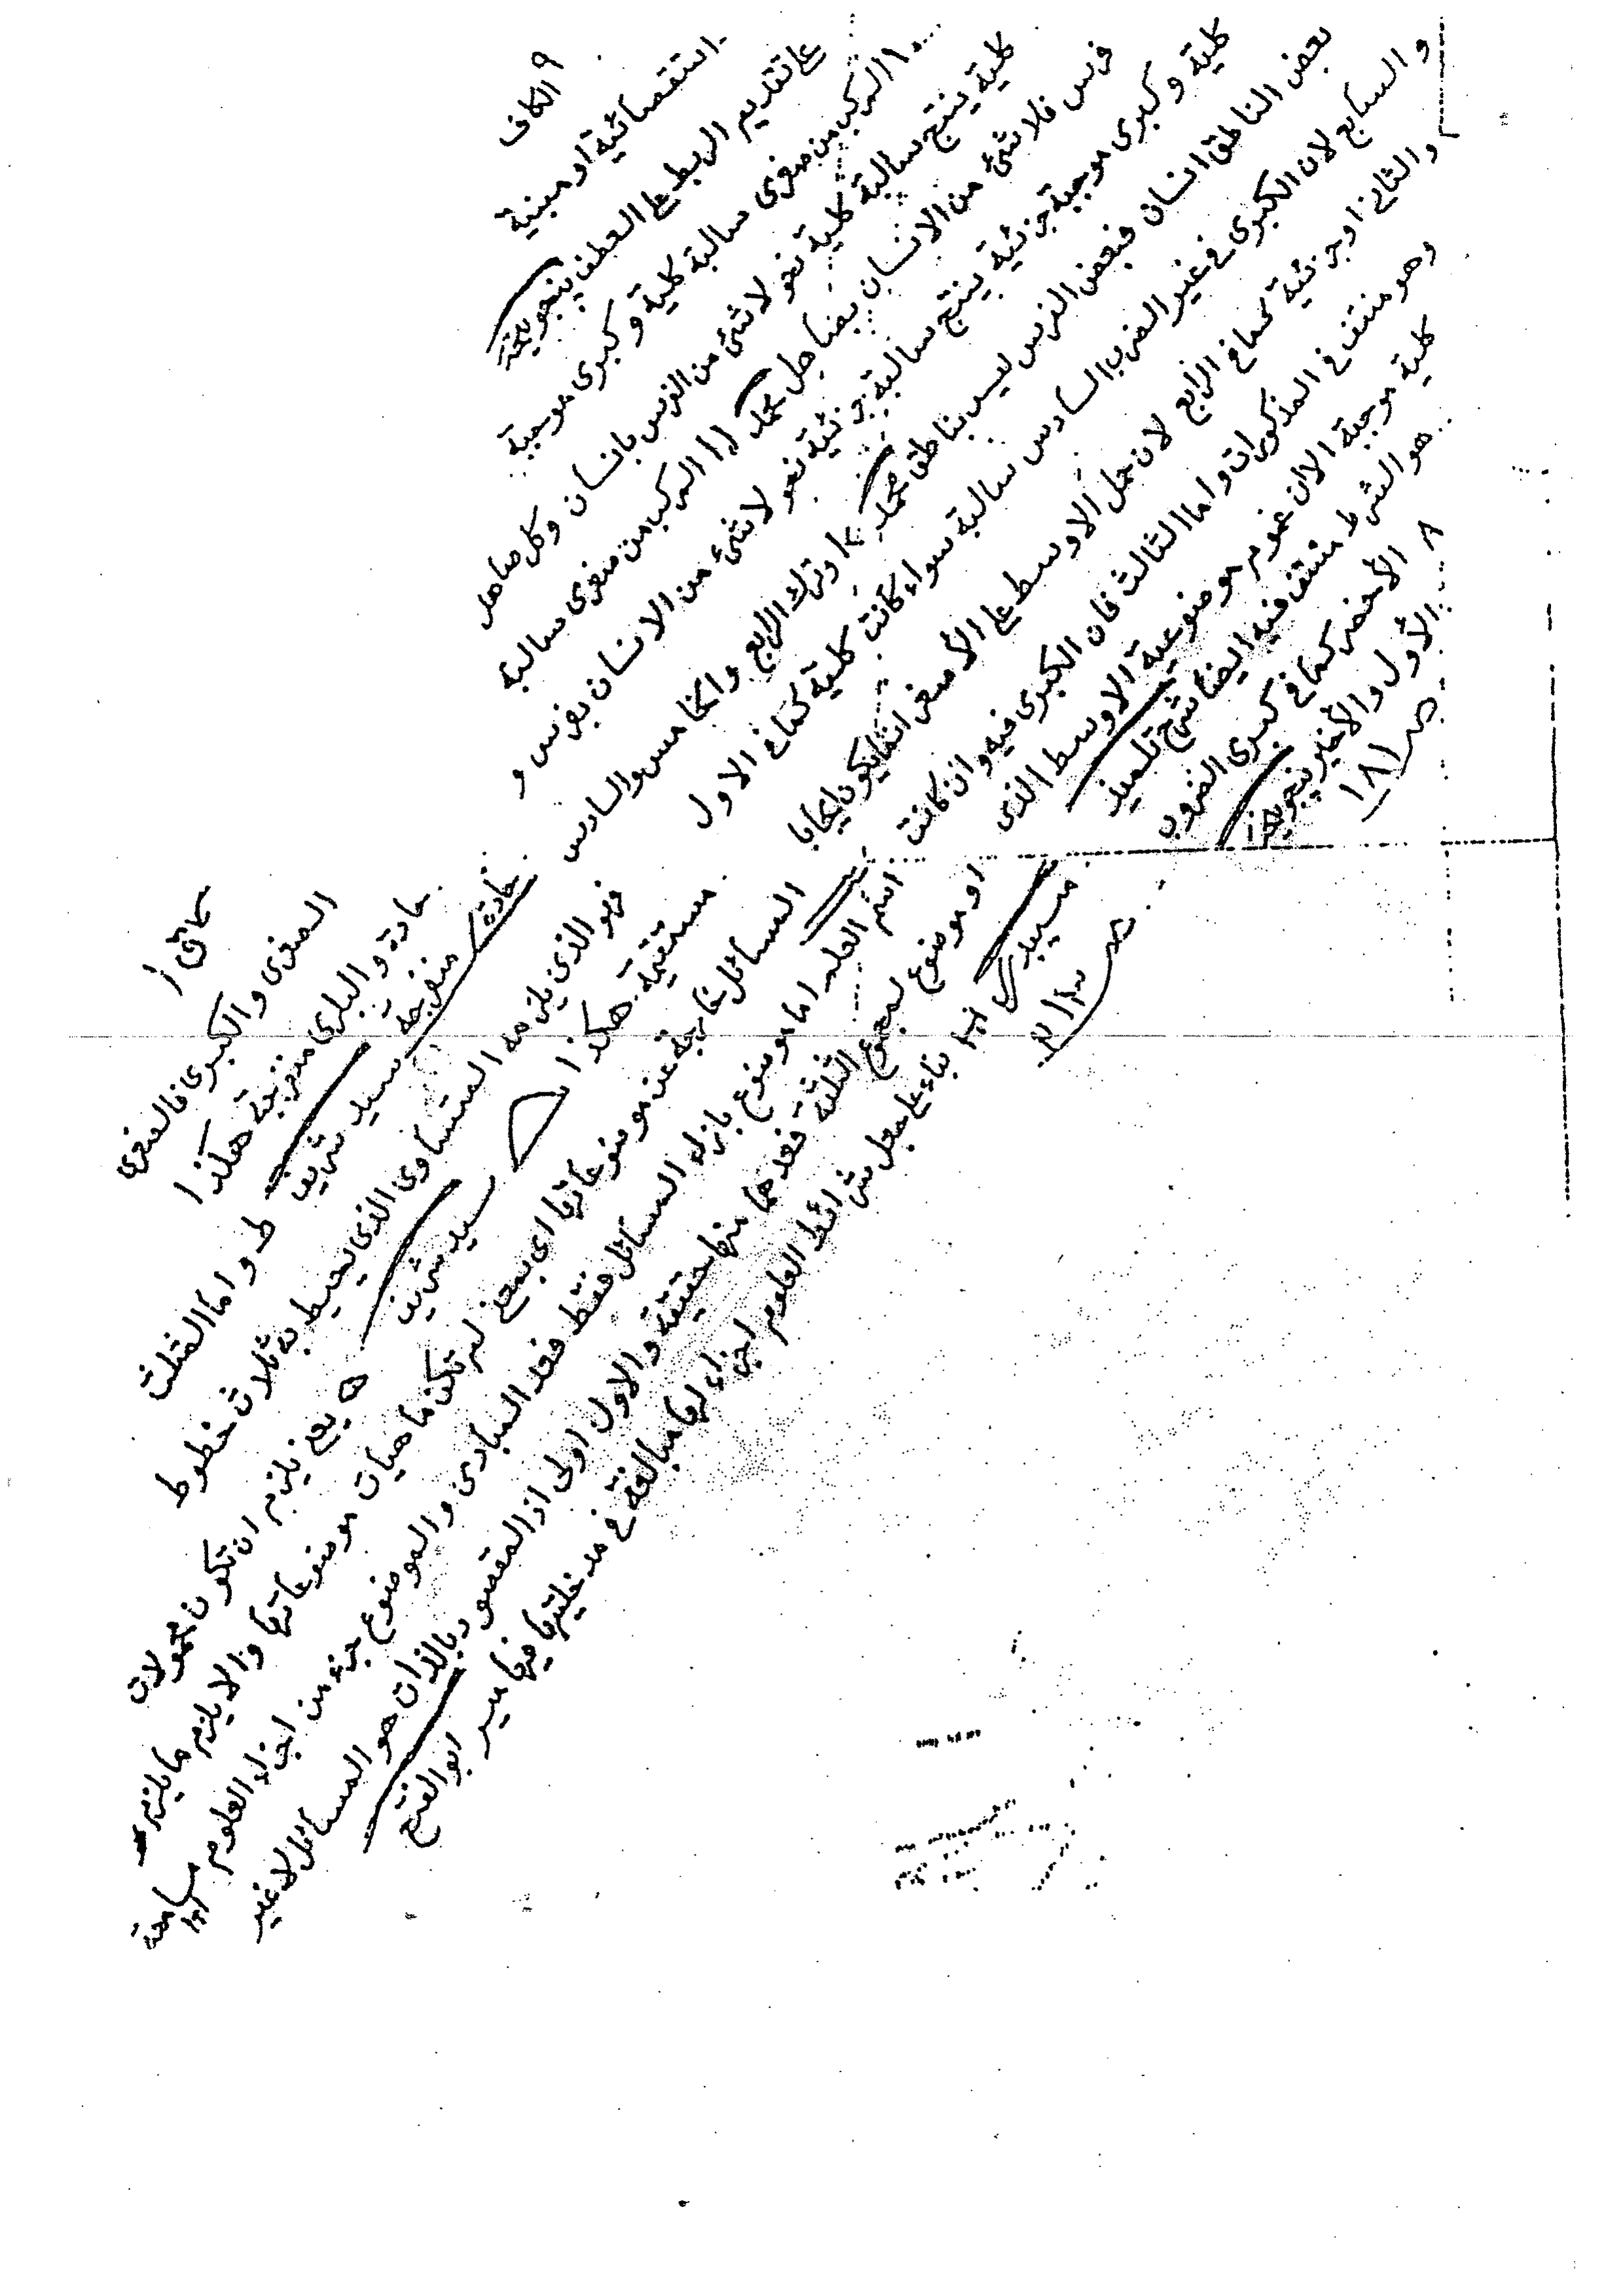 ٩ الكاف
استقصائية او مبنية
على تقديم الربط على العطف پنجوينى
١٠ المركب من صغرى سالبة كلية وكبرى موجبة
كلية ينتج سالبة كلية نحو لا شئ من الفرس بانسان وكل صاهل
فرس فلا شئ من الانسان بصاهل محمد ١١ المركب من صغرى سالبة
كلية وكبرى موجبة جزئية ينتج سالبة جزئية نحو لا شئ من الانسان بفرس و
بعض الناطق انسان فبعض الفرس ليس بناطق محمد ١٢ وترك الرابع والخامس والسادس
والسابع لان الكبرى فى غير الضرب السادس سالبة سواء كانت كلية كما فى الاول
والثانى او جزئية كما فى الرابع لان حمل الاوسط على الأصغر انما يكون ايجابا
وهو منتف فى المذكورات واما الثالث فان الكبرى فيه وان كانت
كلية موجبة الا ان عموم موضوعية الاوسط الذى
هو الشرط منتف فيه ايضا شرح تلميذ
٨ الأخص كما فى كبرى الضروب
الأول والأخير پنجوينى
صـ ١٨١
الصغرى والكبرى فالصغرى
حادة والكبرى منفرجة هكذا
حادة منفرجة سيد شريف ط واما المثلث
فهو الذى يلزمه المتساوى الذى يحيط به ثلاث خطوط
مستقيمة هكذا سيد شريف ه يعنى يلزم ان تكون محمولات
المسائل خارجة عن موضوعاتها اى بمعنى لم تكن ماهيات موضوعاتها والا يلزم ما يلزم
اسم العلم اما موضوع بازاء المسائل فقط فعد المبادى والموضوع جزء من اجزاء العلوم مسامحة
او موضوع لمجموع الثلثة فعدهما منها حقيقة والاول اولى اذ المقصود بالذات هو المسائل لا غير
بناء على جعل شرائط العلوم اجزاء لها مبالغة فى مدخليتها فيها مير ابو الفتح